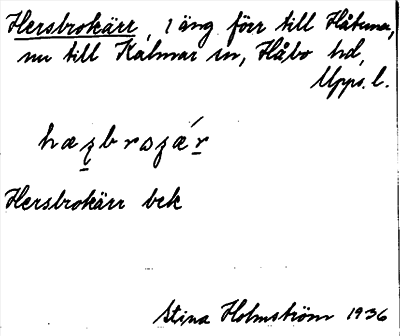 Hersbrokärr, 1 äng förr till Håtuna,
nu till Kalmar sn, Håbo hd,
Upps. l.
Hersbrokärr bek
Stina Holmström 1936